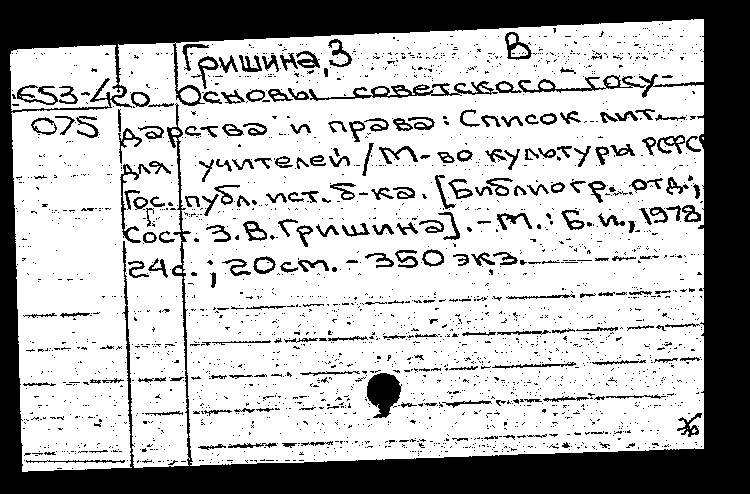 Гришина, З В
653-420 Основы советского госу-
075 дарства и права: Список лит.
для учителей / М-во культуры РСФСР
Гос. публ. ист. б-ка. [Библиогр. отд.;
Сост. З.В. Гришина]. - М.: Б. и., 1978
24с.; 20см. - 350 экз.